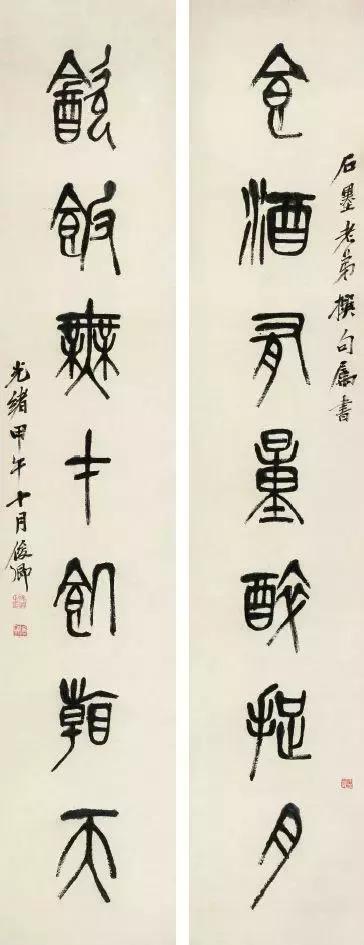 石墨老弟撰句属書
食酒有量醉捉月
飲飯無才飢朝天
光緒甲午十月俊卿